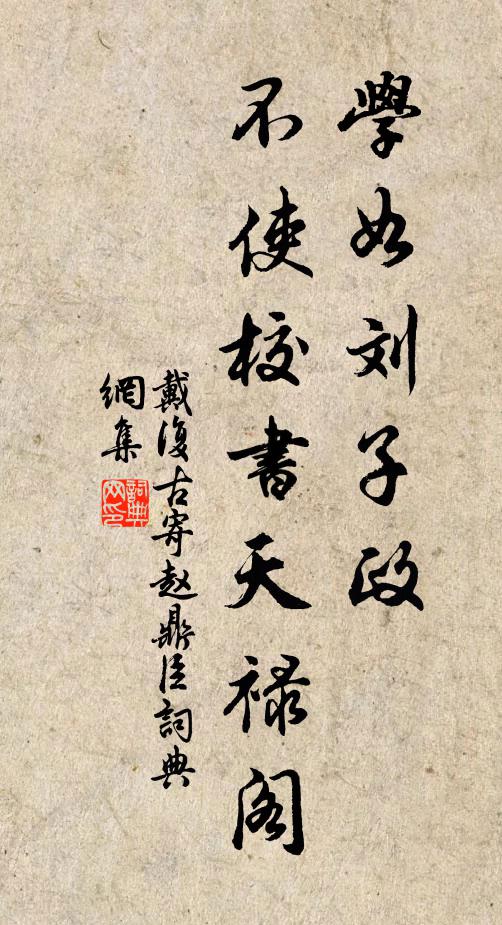 學如刘子政
不使校書天禄阁
戴復古寄赵鼎臣詞典
網集
詞典
网印